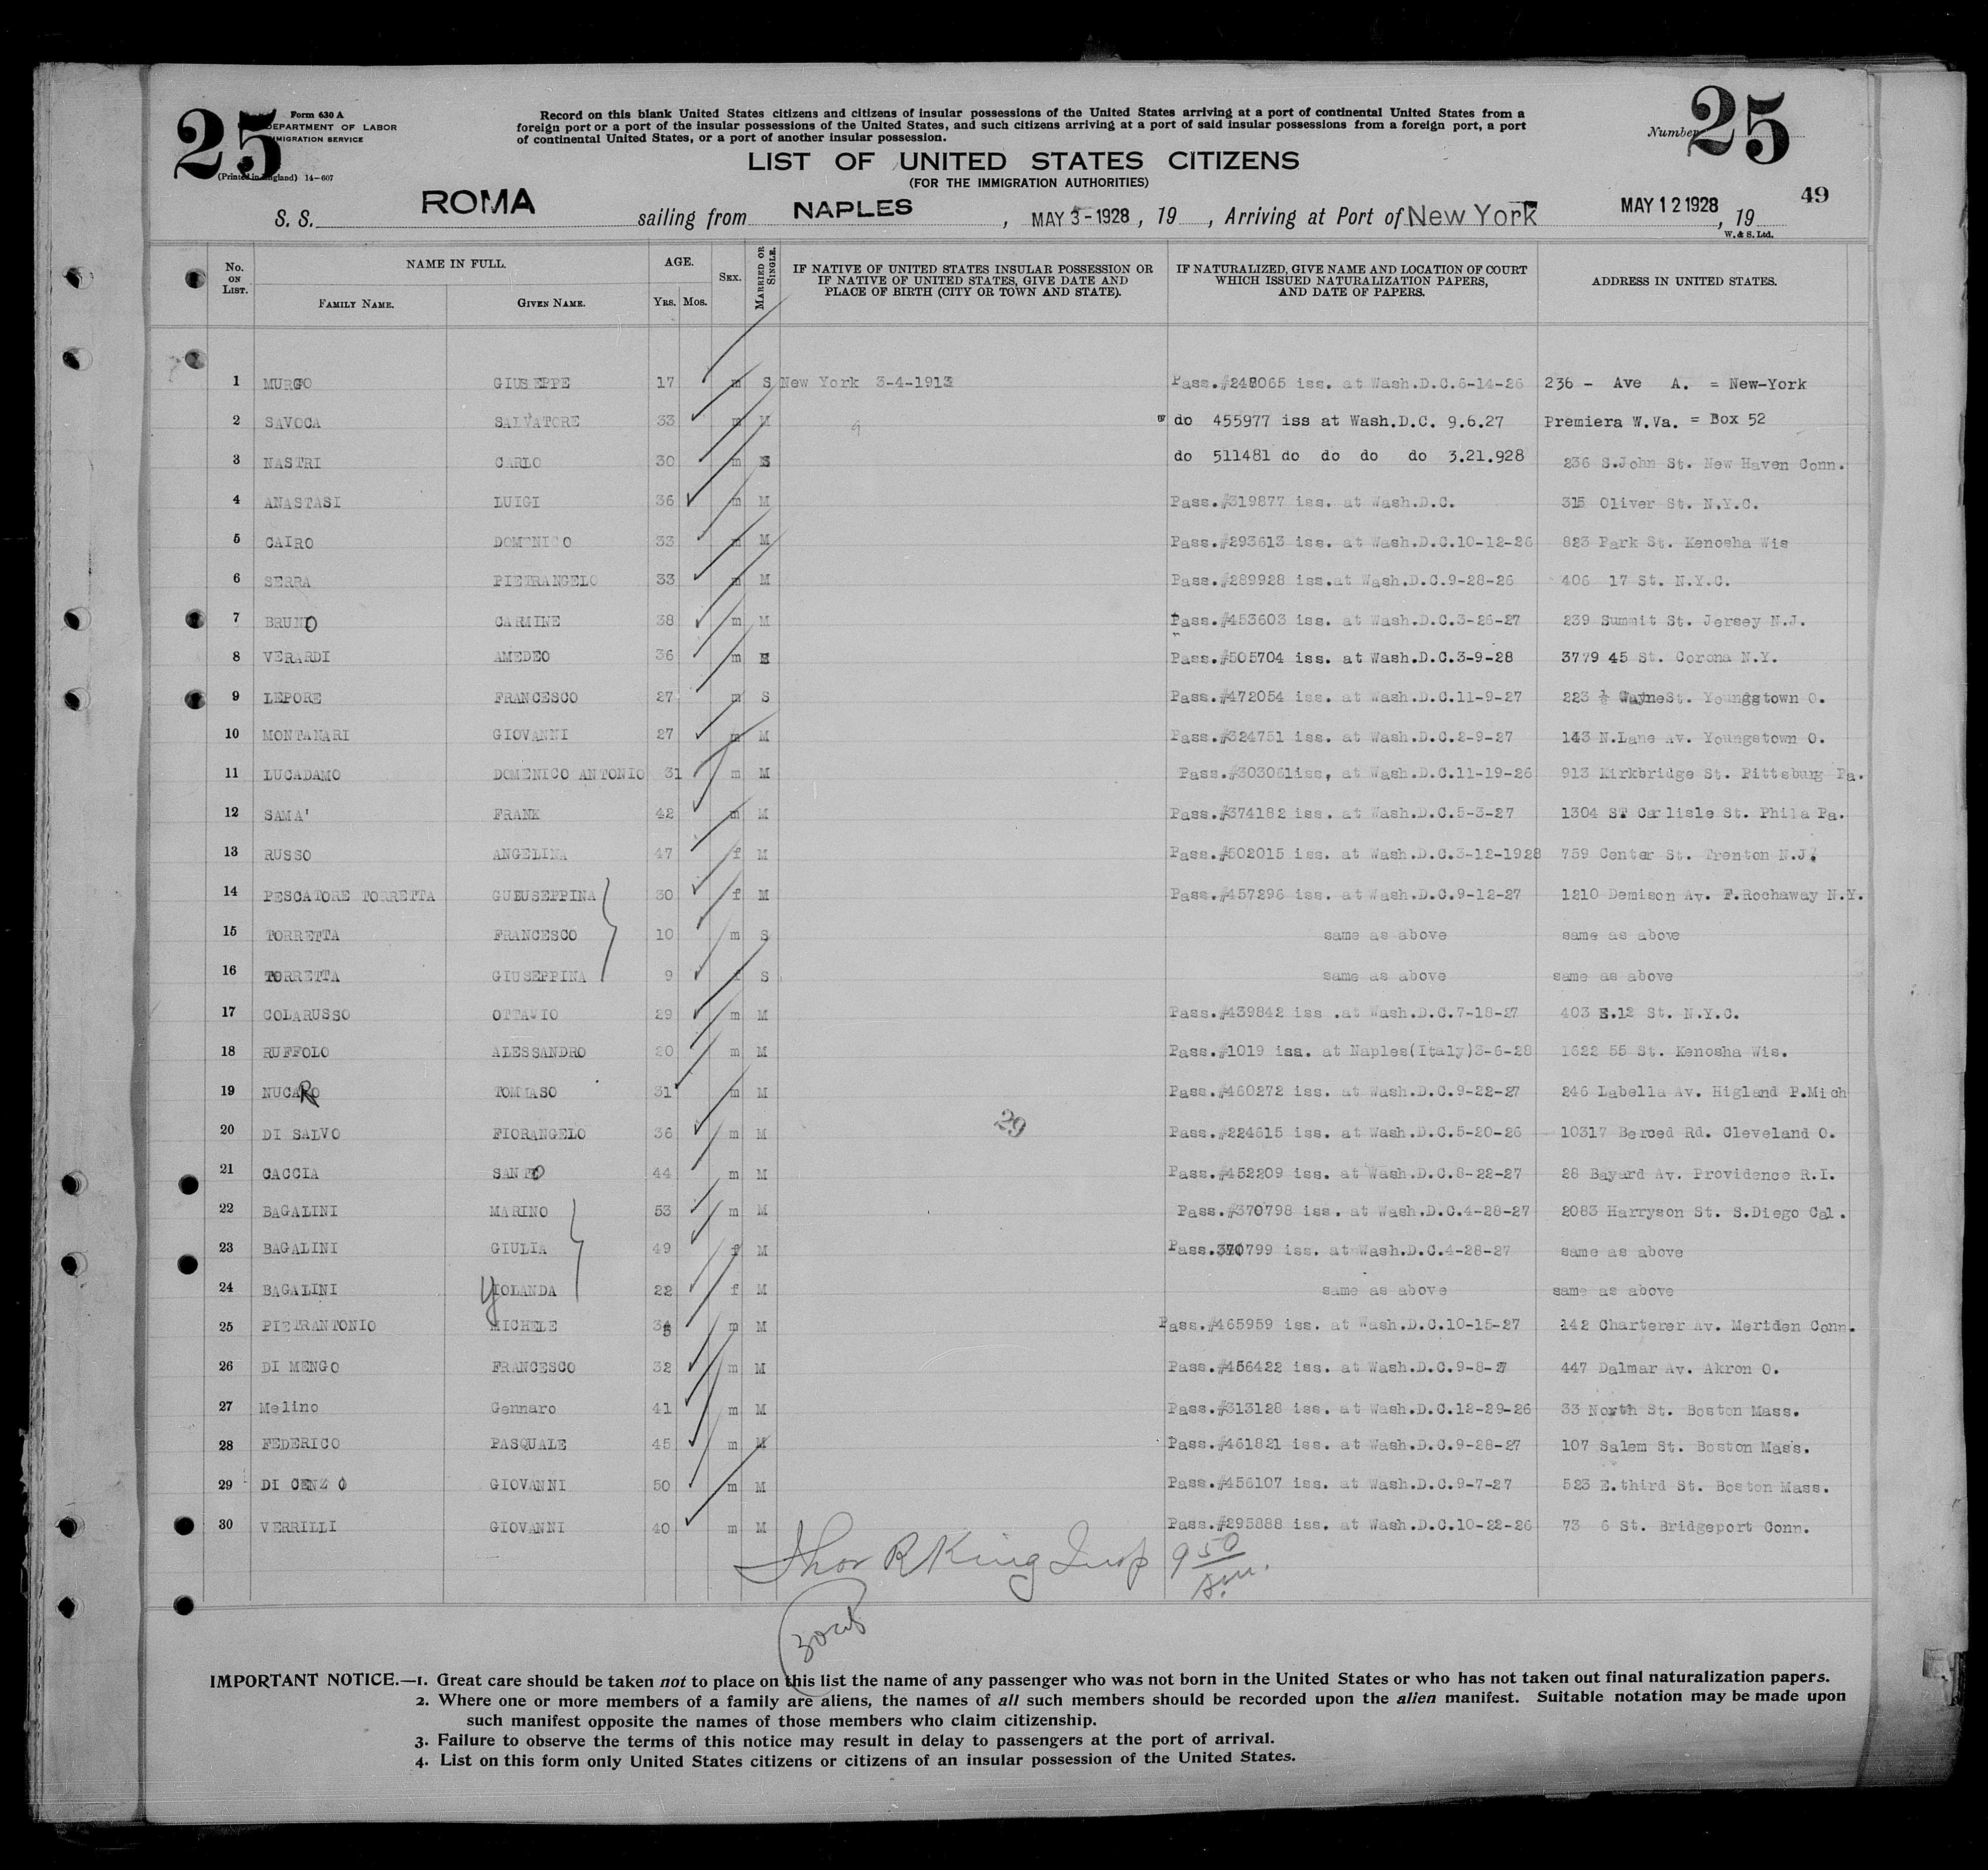 25
Form 630 A
DEPARTMENT OF LABOR
IMMIGRATION SERVICE
(Printed in England) 14-607
Record on this blank United States citizens and citizens of insular possessions of the United States arriving at a port of continental United States from a
foreign port or a port of the insular possessions of the United States, and such citizens arriving at a port of said insular possessions from a foreign port, a port
of continental United States, or a port of another insular possession.
Number 25
LIST OF UNITED STATES CITIZENS
(FOR THE IMMIGRATION AUTHORITIES)
49
S. S. ROMA sailing from NAPLES, MAY 3-1928, 19, Arriving at Port of New York MAY 12 1928, 19
W. & S. Ltd.
No. ON LIST. NAME IN FULL. FAMILY NAME. GIVEN NAME. AGE. YRS. MOS. SEX. MARRIED OR SINGLE. IF NATIVE OF UNITED STATES INSULAR POSSESSION OR IF NATIVE OF UNITED STATES, GIVE DATE AND PLACE OF BIRTH (CITY OR TOWN AND STATE). IF NATURALIZED, GIVE NAME AND LOCATION OF COURT WHICH ISSUED NATURALIZATION PAPERS, AND DATE OF PAPERS. ADDRESS IN UNITED STATES.
1 MURGO GIUSEPPE 17 m S New York 3-4-1913 Pass.#248065 iss. at Wash.D.C.6-14-26 236 - Ave A. = New-York
2 SAVOCA SALVATORE 33 m M do 455977 iss at Wash.D.C. 9.6.27 Premiera W.Va. = Box 52
3 NASTRI CARLO 30 m S do 511481 do do do do 3.21.928 236 S.John St. New Haven Conn.
4 ANASTASI LUIGI 36 m M Pass.#319877 iss. at Wash.D.C. 315 Oliver St. N.Y.C.
5 CAIRO DOMENICO 33 m M Pass.#293613 iss. at Wash.D.C.10-12-26 823 Park St. Kenosha Wis
6 SERRA PIETRANGELO 33 m M Pass.#289928 iss.at Wash.D.C.9-28-26 406 17 St. N.Y.C.
7 BRUNO CARMINE 38 m M Pass.#453603 iss. at Wash.D.C.3-26-27 239 Summit St. Jersey N.J.
8 VERARDI AMEDEO 36 m Pass.#505704 iss. at Wash.D.C.3-9-28 3779 45 St. Corona N.Y.
9 LEPORE FRANCESCO 27 m S Pass.#472054 iss. at Wash.D.C.11-9-27 223 ½ WayneSt. Younggtown O.
10 MONTANARI GIOVANNI 27 m M Pass.#324751 iss. at Wash.D.C.2-9-27 143 N.Lane Av. Youngstown O.
11 LUCADAMO DOMENICO ANTONIO 31 m M Pass.#303061iss, at Wash.D.C.11-19-26 913 Kirkbridge St. Pittsburg Pa.
12 SAMA' FRANK 42 m M Pass.#374182 iss. at Wash.D.C.5-3-27 1304 ST Carlisle St. Phila Pa.
13 RUSSO ANGELINA 47 f M Pass.#502015 iss. at Wash.D.C.3-12-1928 759 Center St. Trenton N.J.
14 PESCATORE TORRETTA GUEUSEPPINA 30 f M Pass.#457296 iss. at Wash.D.C.9-12-27 1210 Demison Av. F.Rochaway N.Y.
15 TORRETTA FRANCESCO 10 m S same as above same as above
16 TORRETTA GIUSEPPINA 9 f S same as above same as above
17 COLARUSSO OTTAVIO 29 m M Pass.#439842 iss .at Wash.D.C.7-18-27 403 E.12 St. N.Y.C.
18 RUFFOLO ALESSANDRO 20 m M Pass.#1019 iss. at Naples(Italy)3-6-28 1622 55 St. Kenosha Wis.
19 NUCARO TOMMASO 31 m M Pass.#460272 iss. at Wash.D.C.9-22-27 246 Labella Av. Higland P.Mich
20 DI SALVO FIORANGELO 36 m M 29 Pass.#224615 iss. at Wash.D.C.5-20-26 10317 Berced Rd. Cleveland O.
21 CACCIA SANTO 44 m M Pass.#452209 iss. at Wash.D.C.8-22-27 28 Bayard Av. Providence R.I.
22 BAGALINI MARINO 53 m M Pass.#370798 iss. at Wash.D.C.4-28-27 2083 Harryson St. S.Diego Cal.
23 BAGALINI GIULIA 49 f M Pass.370799 iss. at Wash.D.C.4-28-27 same as above
24 BAGALINI YOLANDA 22 f M same as above same as above
25 PIETRANTONIO MICHELE 35 m M Pass.#465959 iss. at Wash.D.C.10-15-27 142 Charterer Av. Meriden Conn.
26 DI MENGO FRANCESCO 32 m M Pass.#456422 iss. at Wash.D.C.9-8-27 447 Dalmar Av. Akron O.
27 Melino Gennaro 41 m M Pass.#313128 iss. at Wash.D.C.12-29-26 33 North St. Boston Mass.
28 FEDERICO PASQUALE 45 m M Pass.#461821 iss. at Wash.D.C.9-28-27 107 Salem St. Boston Mass.
29 DI CENZO GIOVANNI 50 m M Pass.#456107 iss. at Wash.D.C.9-7-27 523 E.third St. Boston Mass.
30 VERRILLI GIOVANNI 40 m M Pass.#295888 iss. at Wash.D.C.10-22-26 73 6 St. Bridgeport Conn.
Thor R King Insp 9 50 a.m.
IMPORTANT NOTICE.—1. Great care should be taken not to place on this list the name of any passenger who was not born in the United States or who has not taken out final naturalization papers.
2. Where one or more members of a family are aliens, the names of all such members should be recorded upon the alien manifest. Suitable notation may be made upon
such manifest opposite the names of those members who claim citizenship.
3. Failure to observe the terms of this notice may result in delay to passengers at the port of arrival.
4. List on this form only United States citizens or citizens of an insular possession of the United States.